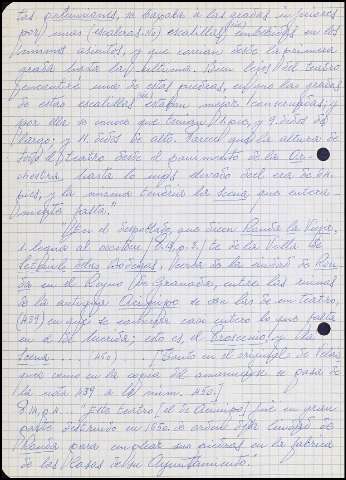 tas precinciones, se bajaba a las gradas inferiores
por unas (escaleras. No) escalillas embebidas en los
mismos asientos, y que corrían desde la primera
grada hasta la última. Bien lejos del teatro
encontré una de estas piedras, en que las gradas
de estas escalillas estaban mejor conservadas, y
por ella se conoce que tenían 1 pie, y 9 dedos de
largo; y 11 dedos de alto. Parece que la altura de
todo el teatro desde el pavimento de la Or-
chestra hasta lo más elevado del era de
pies, y la misma tendría la scena que entera-
mente falta."
en el despoblado, que dicen Ronda la Vieja,
1 legua al de la Villa de
Setenil de las Bodegas, cerca de la ciudad de Ron-
da en el Reyno de Granada, entre las ruinas
de la antigua Acinippo se ven las de un teatro,
(439) en que se conserva casi entero lo que falta
en el de Murviedro; esto es, el Proscenio, y la
Scena ..... (450) . [Tanto en el original de Veláz-
quez como en la copia del amanuense se pasa de
la nota 439 a la núm. 450.]
"Este teatro [el de Acinipo] fue en gran
parte destruido en 1650 de orden de la ciudad de
Ronda para emplear sus piedras en la fábrica
de las Casas de su Ayuntamiento."